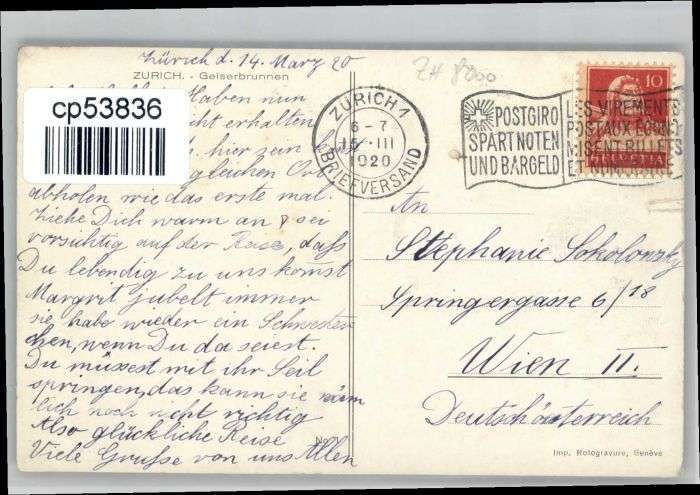 Zürich d. 14. März 20
ZÜRICH. - Geiserbrunnen
ZH 8000
cp53836
Haben nun
erhalten
hier sein
gleichen Ort
abholen wie das erste mal.
Ziehe Dich warm an & sei
vorsichtig auf der Reise, daß
Du lebendig zu uns komst
Margrit jubelt immer
sie habe wieder ein Schwester
chen, wenn Du da seiest.
Du müssest mit ihr Seil
springen, das kann sie näm
lich noch nicht richtig
Also glückliche Reise
Viele Grüsse von uns Allen
No
ZÜRICH 1
6-7
15. III
1920
BRIEFVERSAND
POSTGIRO
SPART NOTEN
UND BARGELD
LES VIREMENTS
POSTAUX ÉCONO
MISENT BILLETS
ET
10
HELVETIA
An
Stephanie Sokolowsky
Springergasse 6/18
Wien II.
Deutschösterreich
Imp. Rotogravure, Genève